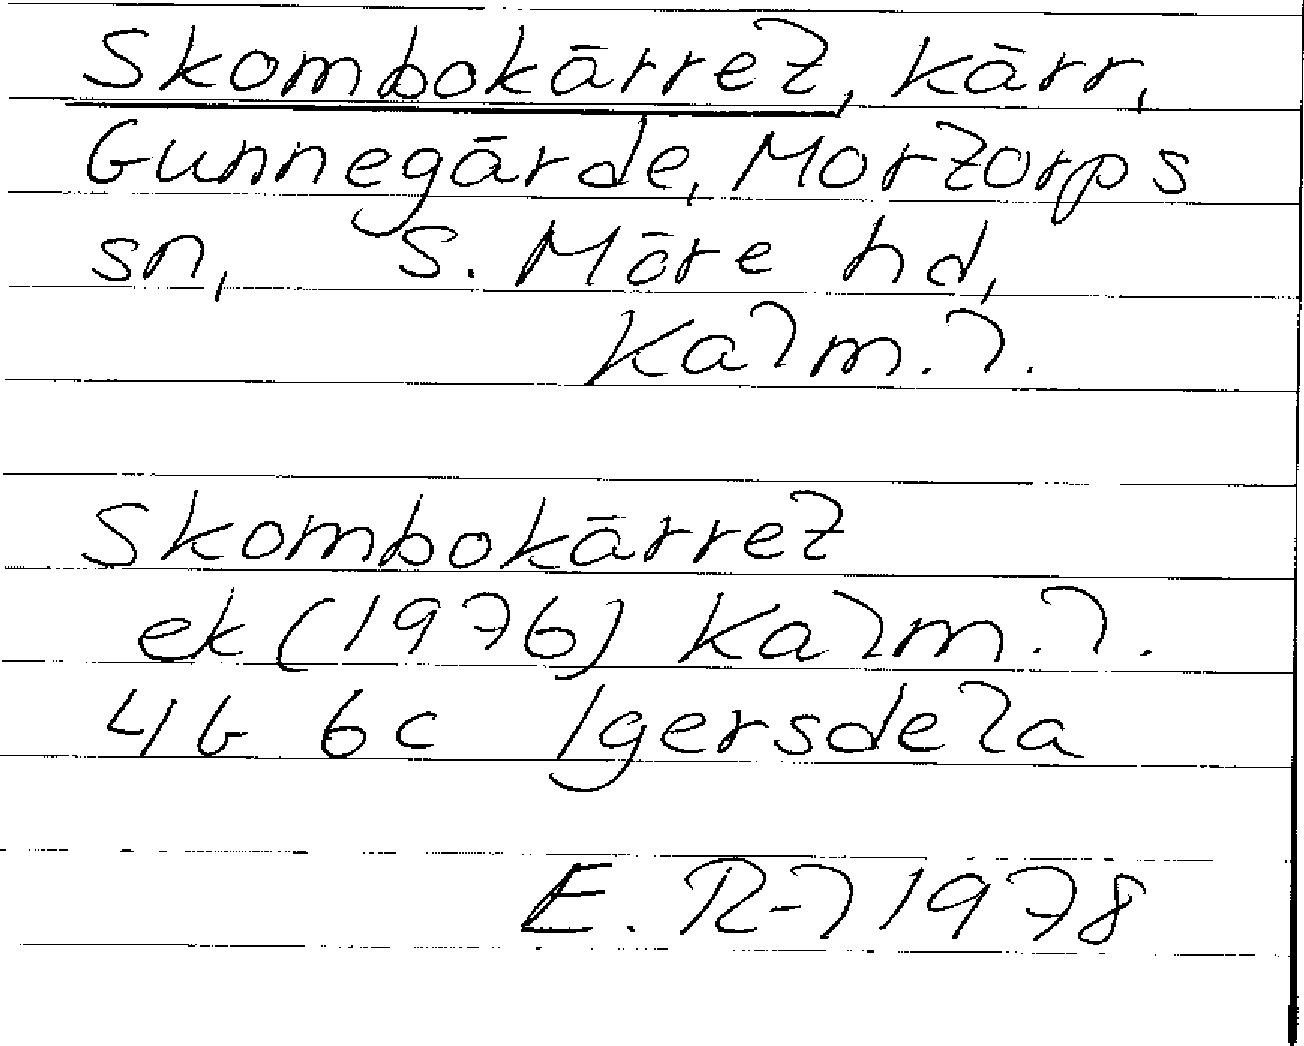 Skombokärret, kärr,
Gunnegärde, Mortorps
sn, S. Möre hd,
Kalm. l.
Skombokärret
ek (1976) Kalm. l.
4G 6c Igersdela
E. R-l 1978